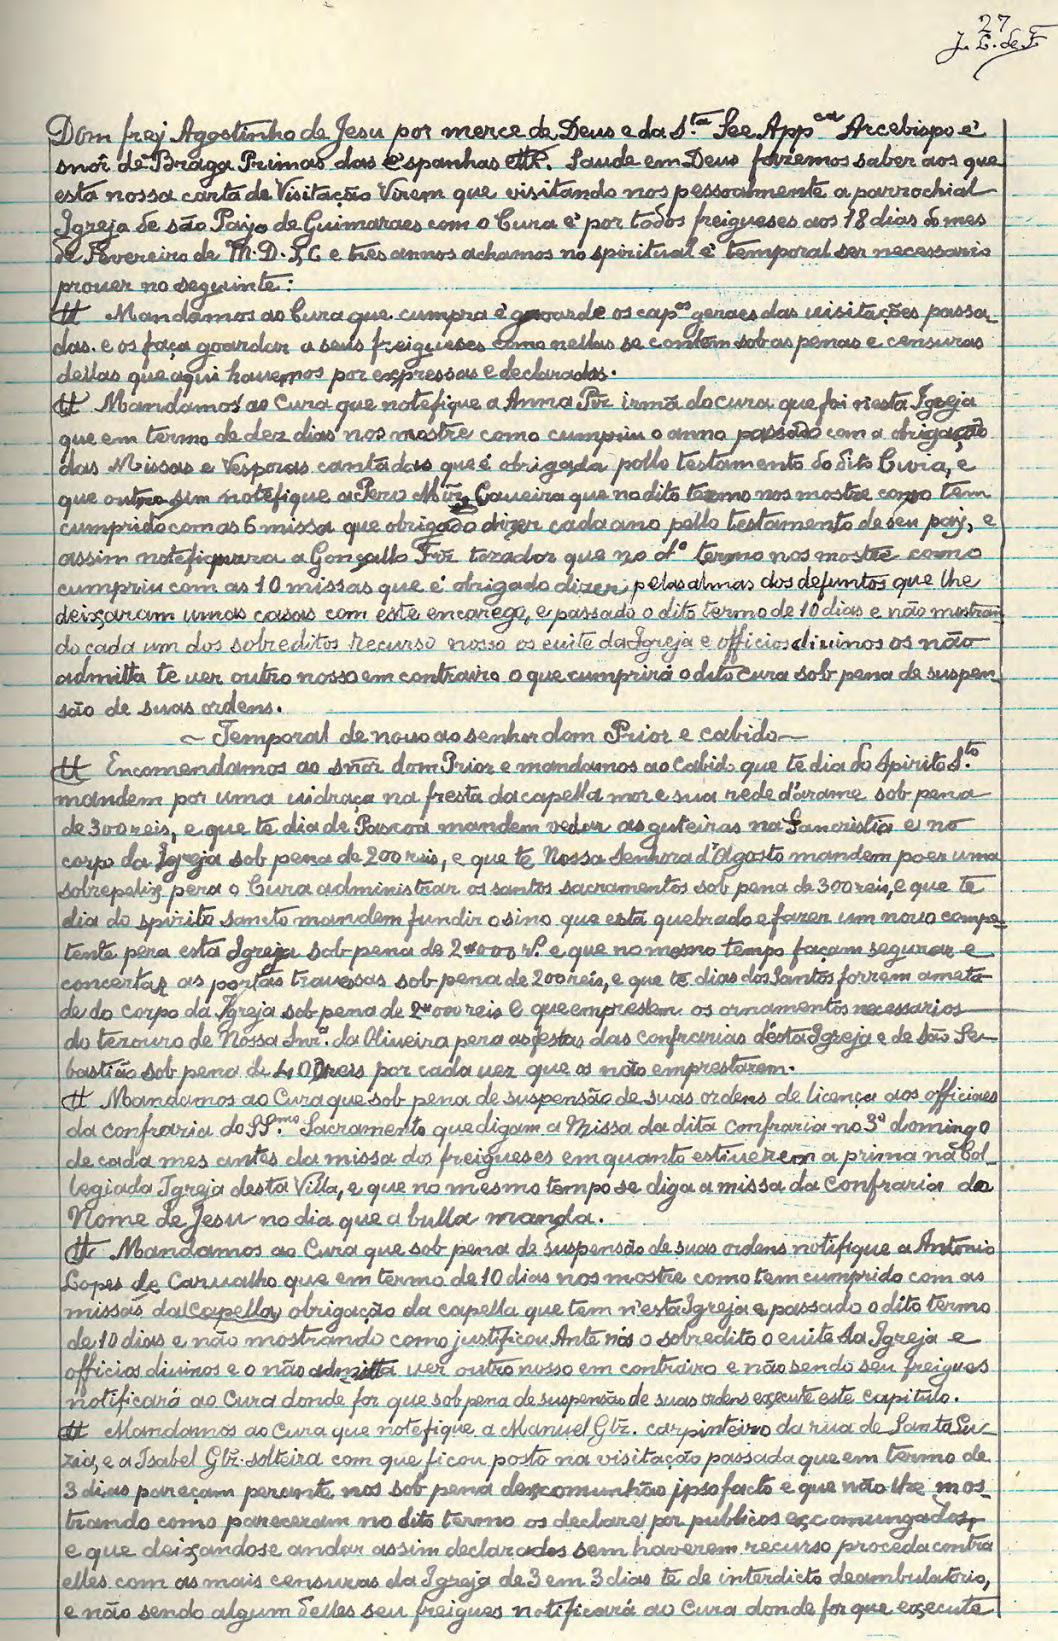 27
J. L. de F.
Dom frej Agostinho de Jesu por merce de Deus e da S.ta See App.ca Arcebispo e
snõr de Braga Primas das Espanhas ettr. Saude em Deus fazemos saber aos que
esta nossa carta de Visitação Virem que visitando nos pessoalmente a parrochial
Igreja de são Payo de Guimaraes com o Cura e por todos freigueses aos 18 dias do mes
de Fevereiro de M. D. LC e tres annos achamos no spiritual e temporal ser necessario
prouer no seguinte:
# Mandamos ao Cura que cumpra e goarde os cap.os geraes das uisitações passa-
das e os faça goardar a seus freigueses como nellas se contem sob as penas e censuras
dellas que aqui hauemos por expressas e declaradas.
# Mandamos ao Cura que notefique a Anna Pi̅z irmã do cura que foi nesta Igreja
que em termo de dez dias nos mostre como cumpriu o anno passado com a obrigação
das Missas e Vesporas cantadas que é obrigada pollo testamento do dito Cura, e
que outro sim notefique a Pero Mi̅z Caneira que no dito termo nos mostre como tem
cumprido com as 6 missa que obrigado dizer cada ano pello testamento de seu paj, e
assim notefiquara a Gonçallo Fi̅z tozador que no d.o termo nos mostre como
cumpriu com as 10 missas que é obrigado dizer pelas almas dos defuntos que lhe
deixaram umas casas com este encarego, e passado o dito termo de 10 dias e não mostran-
do cada um dos sobreditos recurso nosso os euite da Igreja e officios diuinos os não
admitta te uer outro nosso em contrairo o que cumprirá o dito cura sob pena de suspen-
são de suas ordens.
~ Temporal de nouo ao senhor dom Prior e cabido ~
# Encomendamos ao snõr dom Prior e mandamos ao Cabido que te dia do Spirito S.to
mandem por uma uidraça na fresta da capella mor e sua rede d'arame sob pena
de 300 reis, e que te dia de Pascoa mandem vedar as guteiras na Sancristia e no
corpo da Igreja sob pena de 200 reis, e que te Nossa Senhora d'Agosto mandem poer uma
sobrepeliz pera o Cura administrar os santos sacramentos sob pena de 300 reis, e que te
dia do spirito sancto mandem fundir o sino que está quebrado e fazer um nouo compe-
tente pera esta Igreja sob pena de 2#000 r.s e que no mesmo tempo façam segurar e
concertar as portas trauessas sob pena de 200 reis, e que te dias dos Santos forrem ameta
de do corpo da Igreja sob pena de 2#000 reis e que emprestem os ornamentos necessarios
do tezouro de Nossa Snr.a da Oliueira pera as festas das confrarias désta Igreja e de São Se-
bastião sob pena de 400 reis por cada uez que os não emprestarem.
# Mandamos ao Cura que sob pena de suspensão de suas ordens de licença aos officiaes
da confraria do SS.mo Sacramento que digam a Missa da dita confraria no 3o domingo
de cada mes antes da missa dos freigueses em quanto estiuerem a prima na Col-
legiada Igreja desta Villa, e que no mesmo tempo se diga a missa da Confraria do
Nome de Jesu no dia que a bulla manda.
# Mandamos ao Cura que sob pena de suspensão de suas ordens notifique a Antonio
Lopes de Carualho que em termo de 10 dias nos mostre como tem cumprido com as
missas da (capella) obrigação da capella que tem n'esta Igreja e passado o dito termo
de 10 dias e não mostrando como justificou Ante nós o sobredito o euite da Igreja e
officios diuinos e o não admitta uer outro nosso em contrairo e não sendo seu freigues
notificará ao Cura donde for que sob pena de suspensão de suas ordens execute este capitulo.
# Mandamos ao Cura que notefique a Manuel Glz̅. carpinteiro da rua de Santa Lu-
zia, e a Isabel Glz̅. solteira com que ficou posto na visitação passada que em termo de
3 dias pareçam perante nos sob pena de excomunhão jpso facto e que não lhe mos-
trando como pareceram no dito termo os declare por publicos excomungados,
e que deixandose andar assim declarados sem hauerem recurso proceda contra
elles com as mais censuras da Igreja de 3 em 3 dias te de interdicto deambulatorio,
e não sendo algum delles seu freigues notificará ao Cura donde for que execute